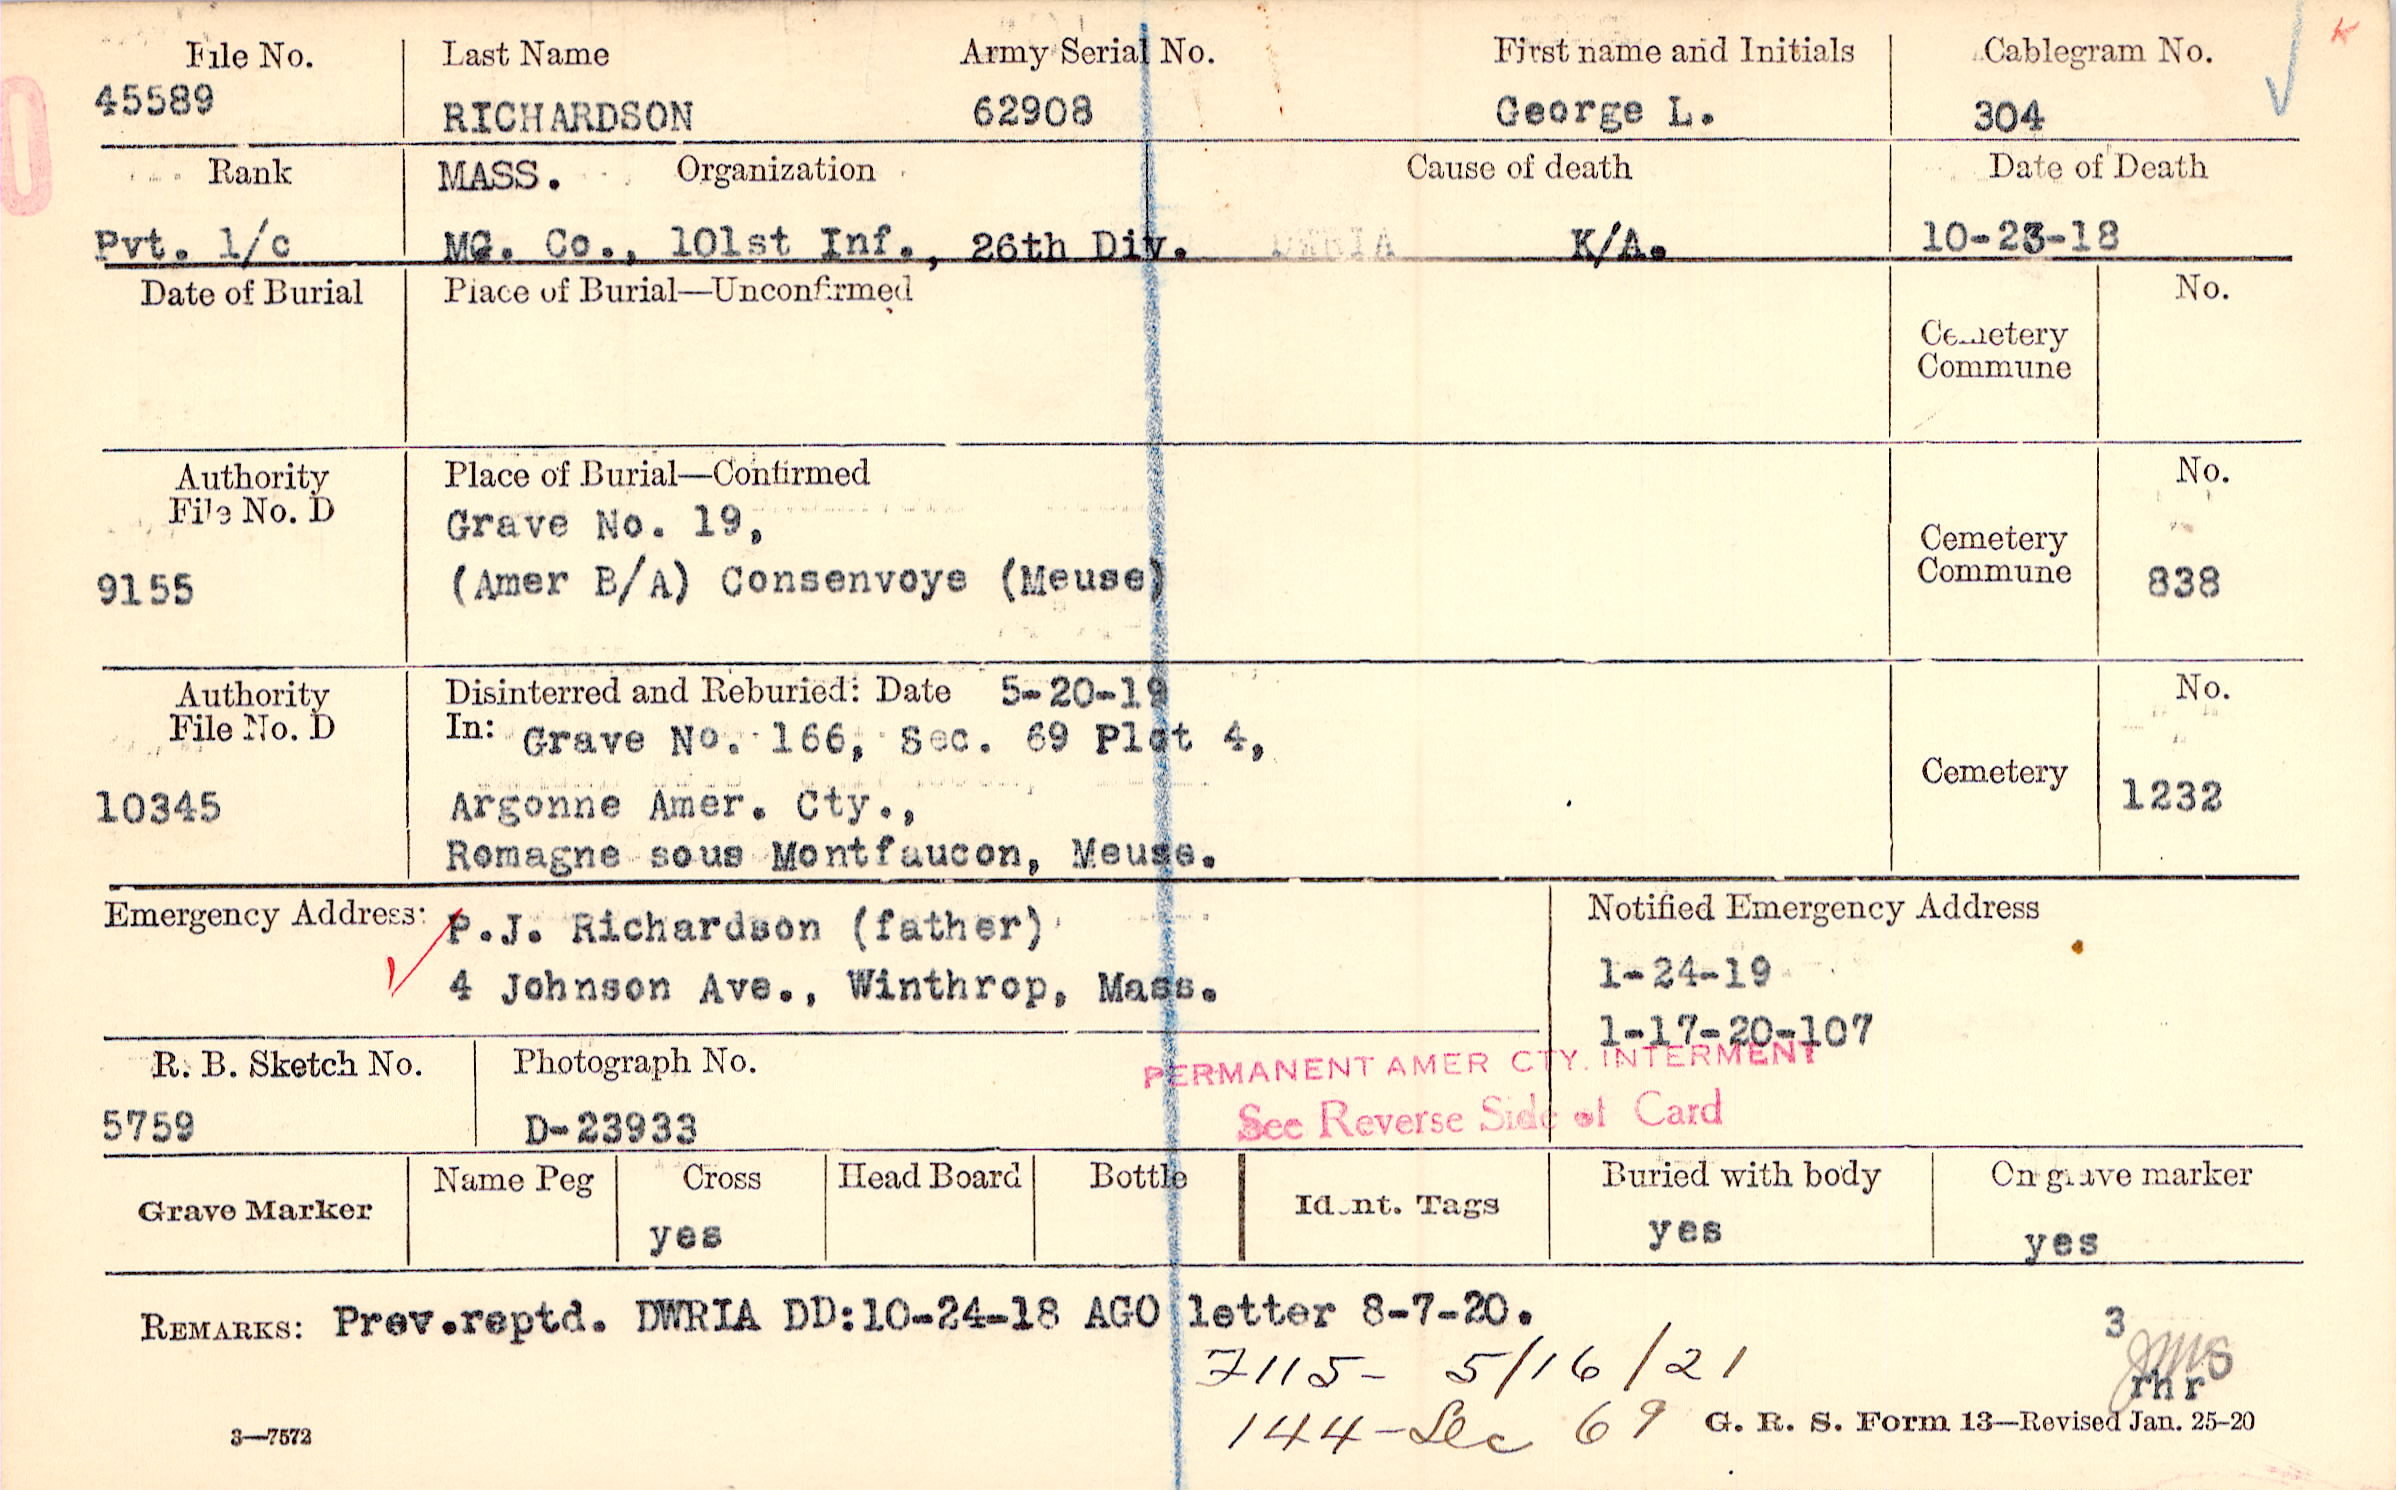 File No. Last Name Army Serial No. First name and Initials Cablegram No.
45589 RICHARDSON 62908 George L. 304
Rank MASS. Organization Cause of death Date of Death
Pvt. 1/c MG. Co., 101st Inf., 26th Div. DWRIA K/A. 10-23-18
Date of Burial Place of Burial—Unconfirmed No.
Cemetery
Commune
Authority Place of Burial—Confirmed No.
File No. D
Grave No. 19,
Cemetery
9155 (Amer B/A) Consenvoye (Meuse) Commune 838
Authority Disinterred and Reburied: Date 5-20-19 No.
File No. D In: Grave No. 166, Sec. 69 Plot 4,
Cemetery
10345 Argonne Amer. Cty., 1232
Romagne sous Montfaucon, Meuse.
Emergency Address: P.J. Richardson (father) Notified Emergency Address
4 Johnson Ave., Winthrop, Mass. 1-24-19
1-17-20-107
R. B. Sketch No. Photograph No. PERMANENT AMER CTY. INTERMENT
5759 D-23933 See Reverse Side of Card
Grave Marker Name Peg Cross Head Board Bottle Ident. Tags Buried with body On grave marker
yes yes yes
REMARKS: Prev.reptd. DWRIA DD:10-24-18 AGO letter 8-7-20. 3
7115- 5/16/21 JMS
rhr
144-Sec 69 G. R. S. Form 13—Revised Jan. 25-20
3—7572